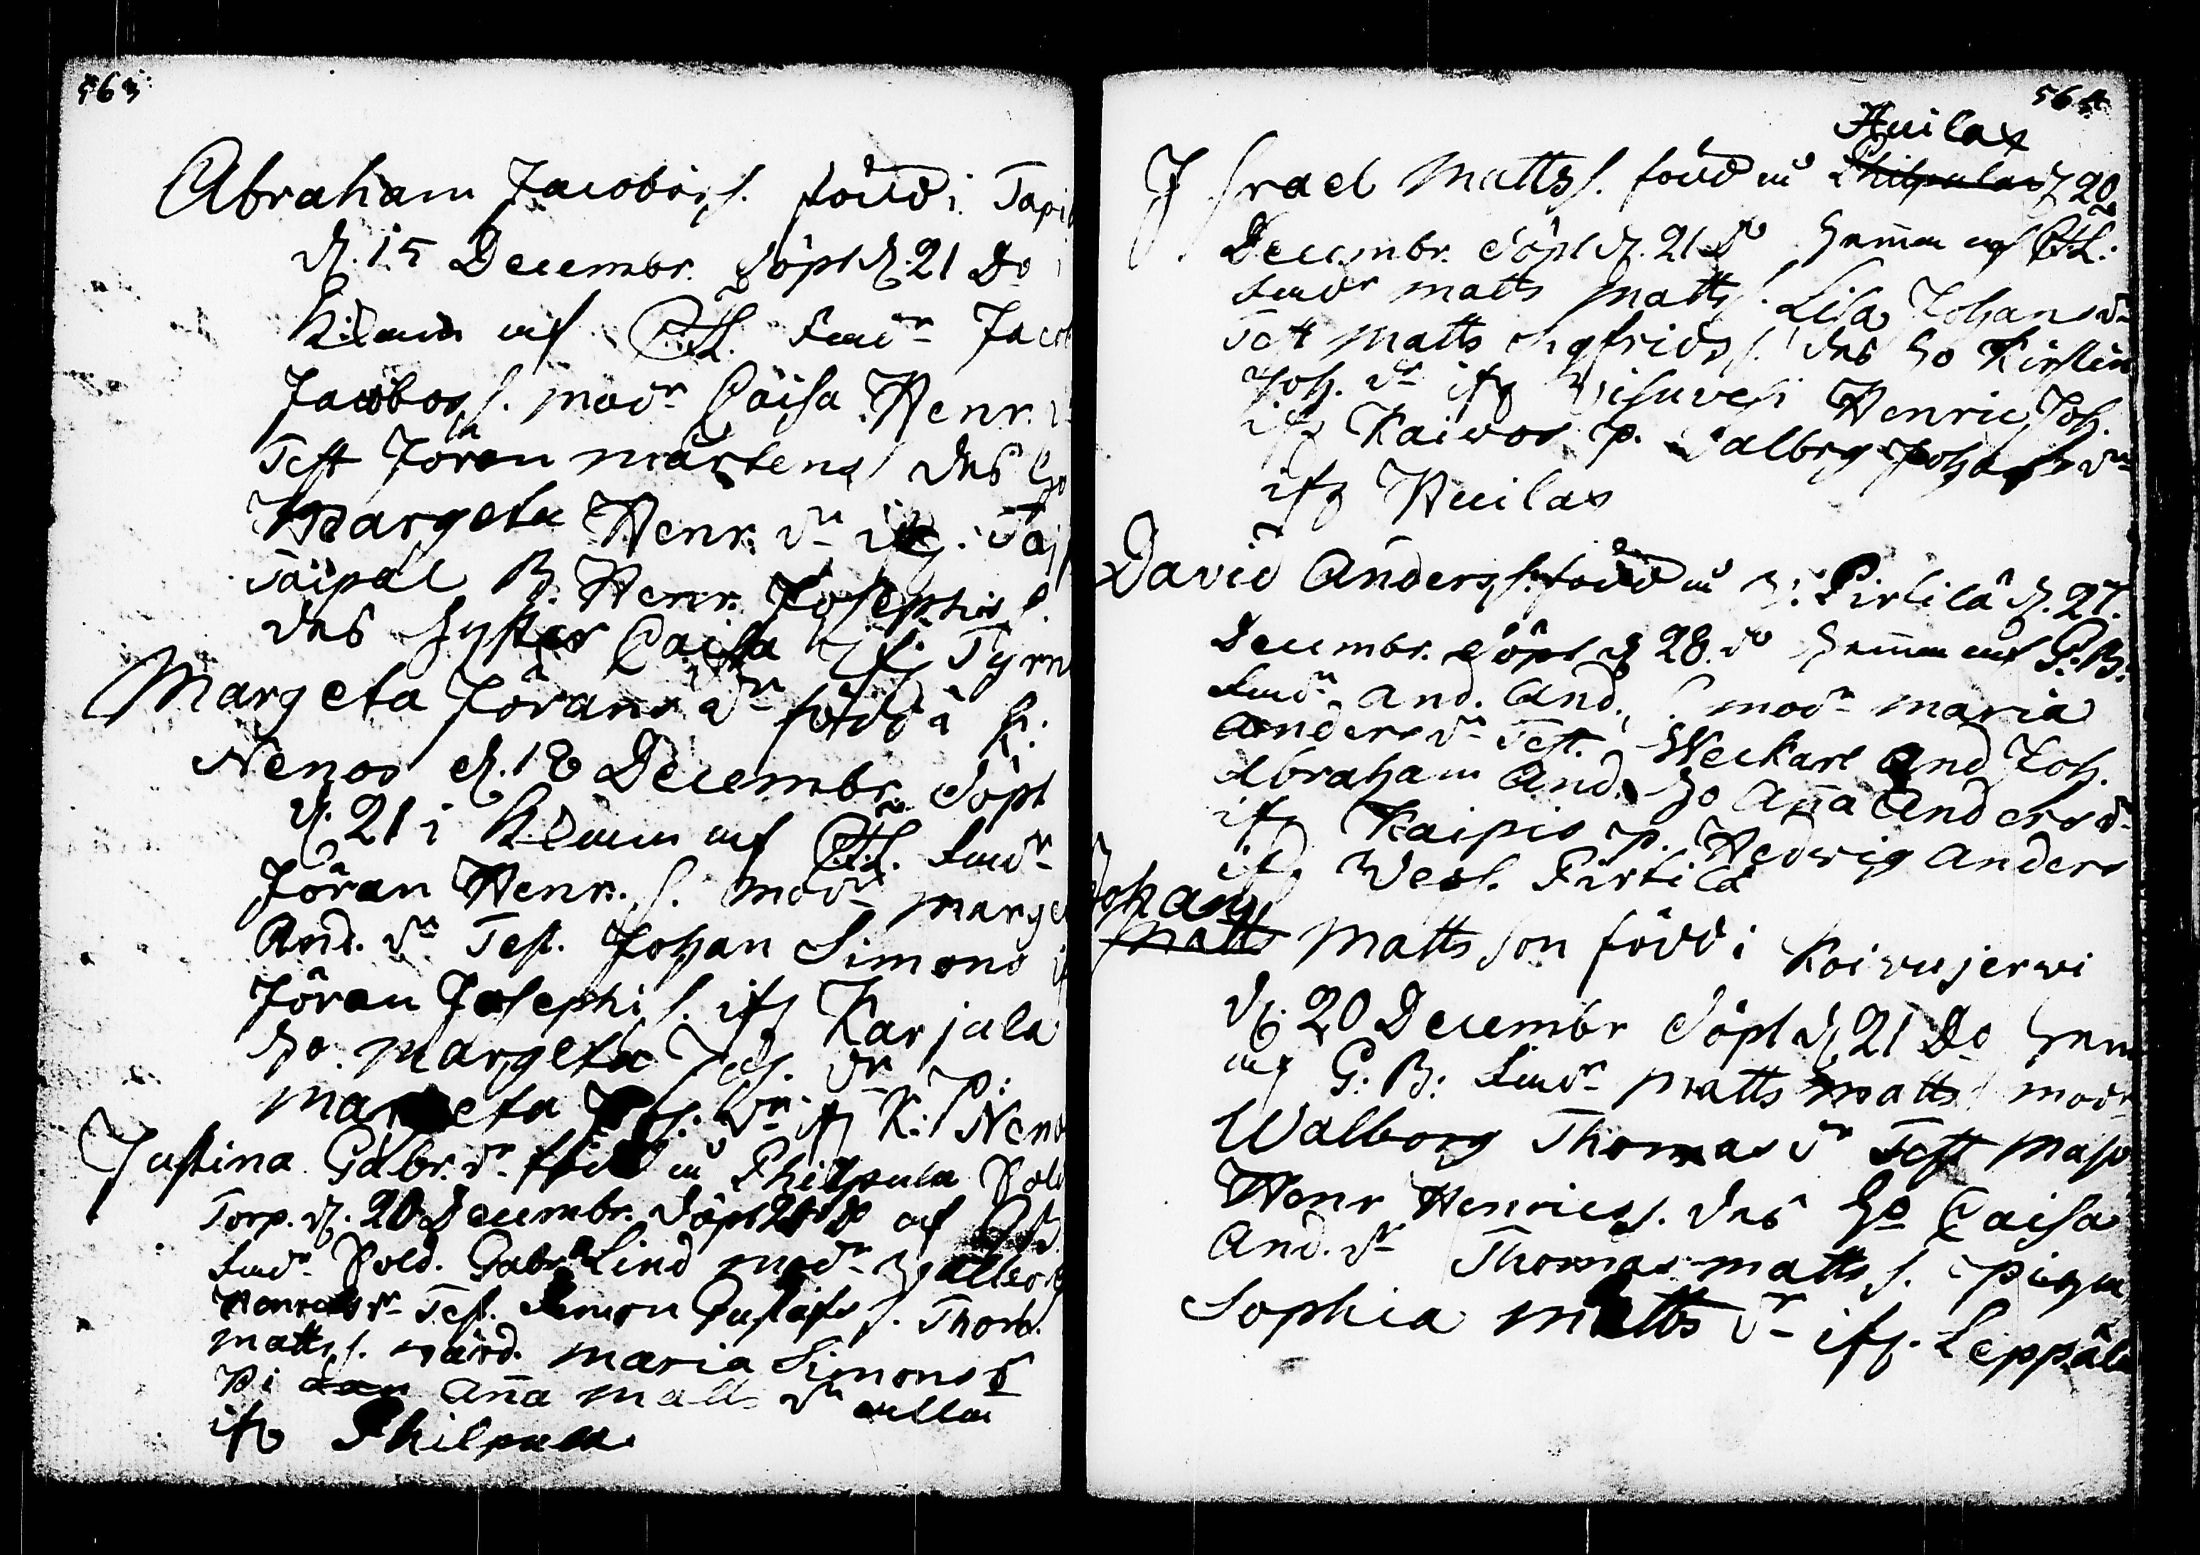 563
Abraham Jacobss. född i Tapi
d. 15 Decembr. döpt d. 21 Do
af C.H. Fadr Jacob
Jacobss. modr Caisa Henr. dr
Test Jöran Mårtens des ho
Margeta Henr. dr ifr. Taj
Taipal B. Henr. Josephis s.
des syster Caisa ifr Tyrn
Margeta Jörans dr född å K.
Nenos d. 18 Decembr. döpt
d. 21 i af C.H. Fadr
Jöran Henr. s. modr Marge
And. dr Test. Johan Simons
Jöran Josephi s. ifr Karjala
ho Margeta dr p:
Margeta dr ifr K. Neno
Justina Gabr. dr född å Philpula Sold
Torp. d. 20 Decembr. döpt 21 do af
Fadr Sold. Gabr. Lind modr Wallborg
Henrics dr Test. Simon Gustafs s. Thom.
Matts s. wärd. Maria Simons dr
Pi Anna Matts dr allm
ifr Philpula
564
Huilax
Israel Matts s. född å Philpula d. 20
Decembr. döpt d. 21 do hemma af C.H.
Fadr Matts Matts s. Lisa Johans dr
Test Matts Sigfrids s. des ho Kirstin
Joh. dr ifr Visuvesi Henric Joh.
ifr Kaivos p. Valbrg Johans dr
ifr Huilax
David Anders s. född å W: Pirtilä d. 27.
Decembr. döpt d. 28. do hemma af G:B:
Fadr And. And. s. modr Maria
Anders dr Test. Weckare And Joh.
Abraham And. ho Anna Anders dr
ifr Kaipis p. Hedwig Anders
ifr Wesl. Pirtilä
Johan
Matts Mattsson född i Koivujerwi
d. 20 Decembr döpt d. 21 Do hem
af G:B: Fadr Matts Matts s modr
Walborg Thomas dr Test Maso
Henr Henrics s. des ho Caisa
And. dr Thomas Matts s. piga
Sophia Matts dr ifr. Leppäla